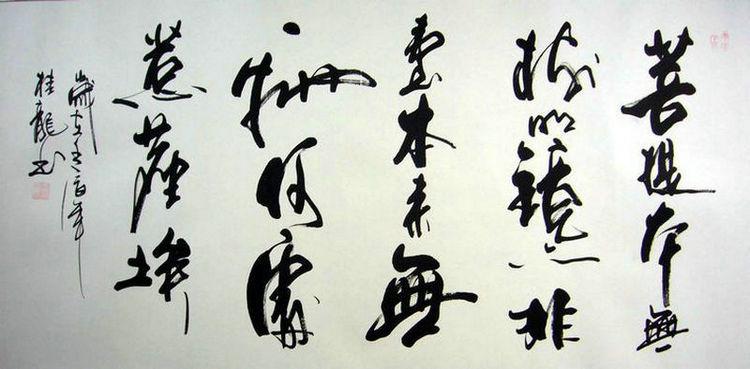 菩提本無
樹明鏡亦非
臺本来無
一物何處
惹塵埃
歲在年
桂龍书